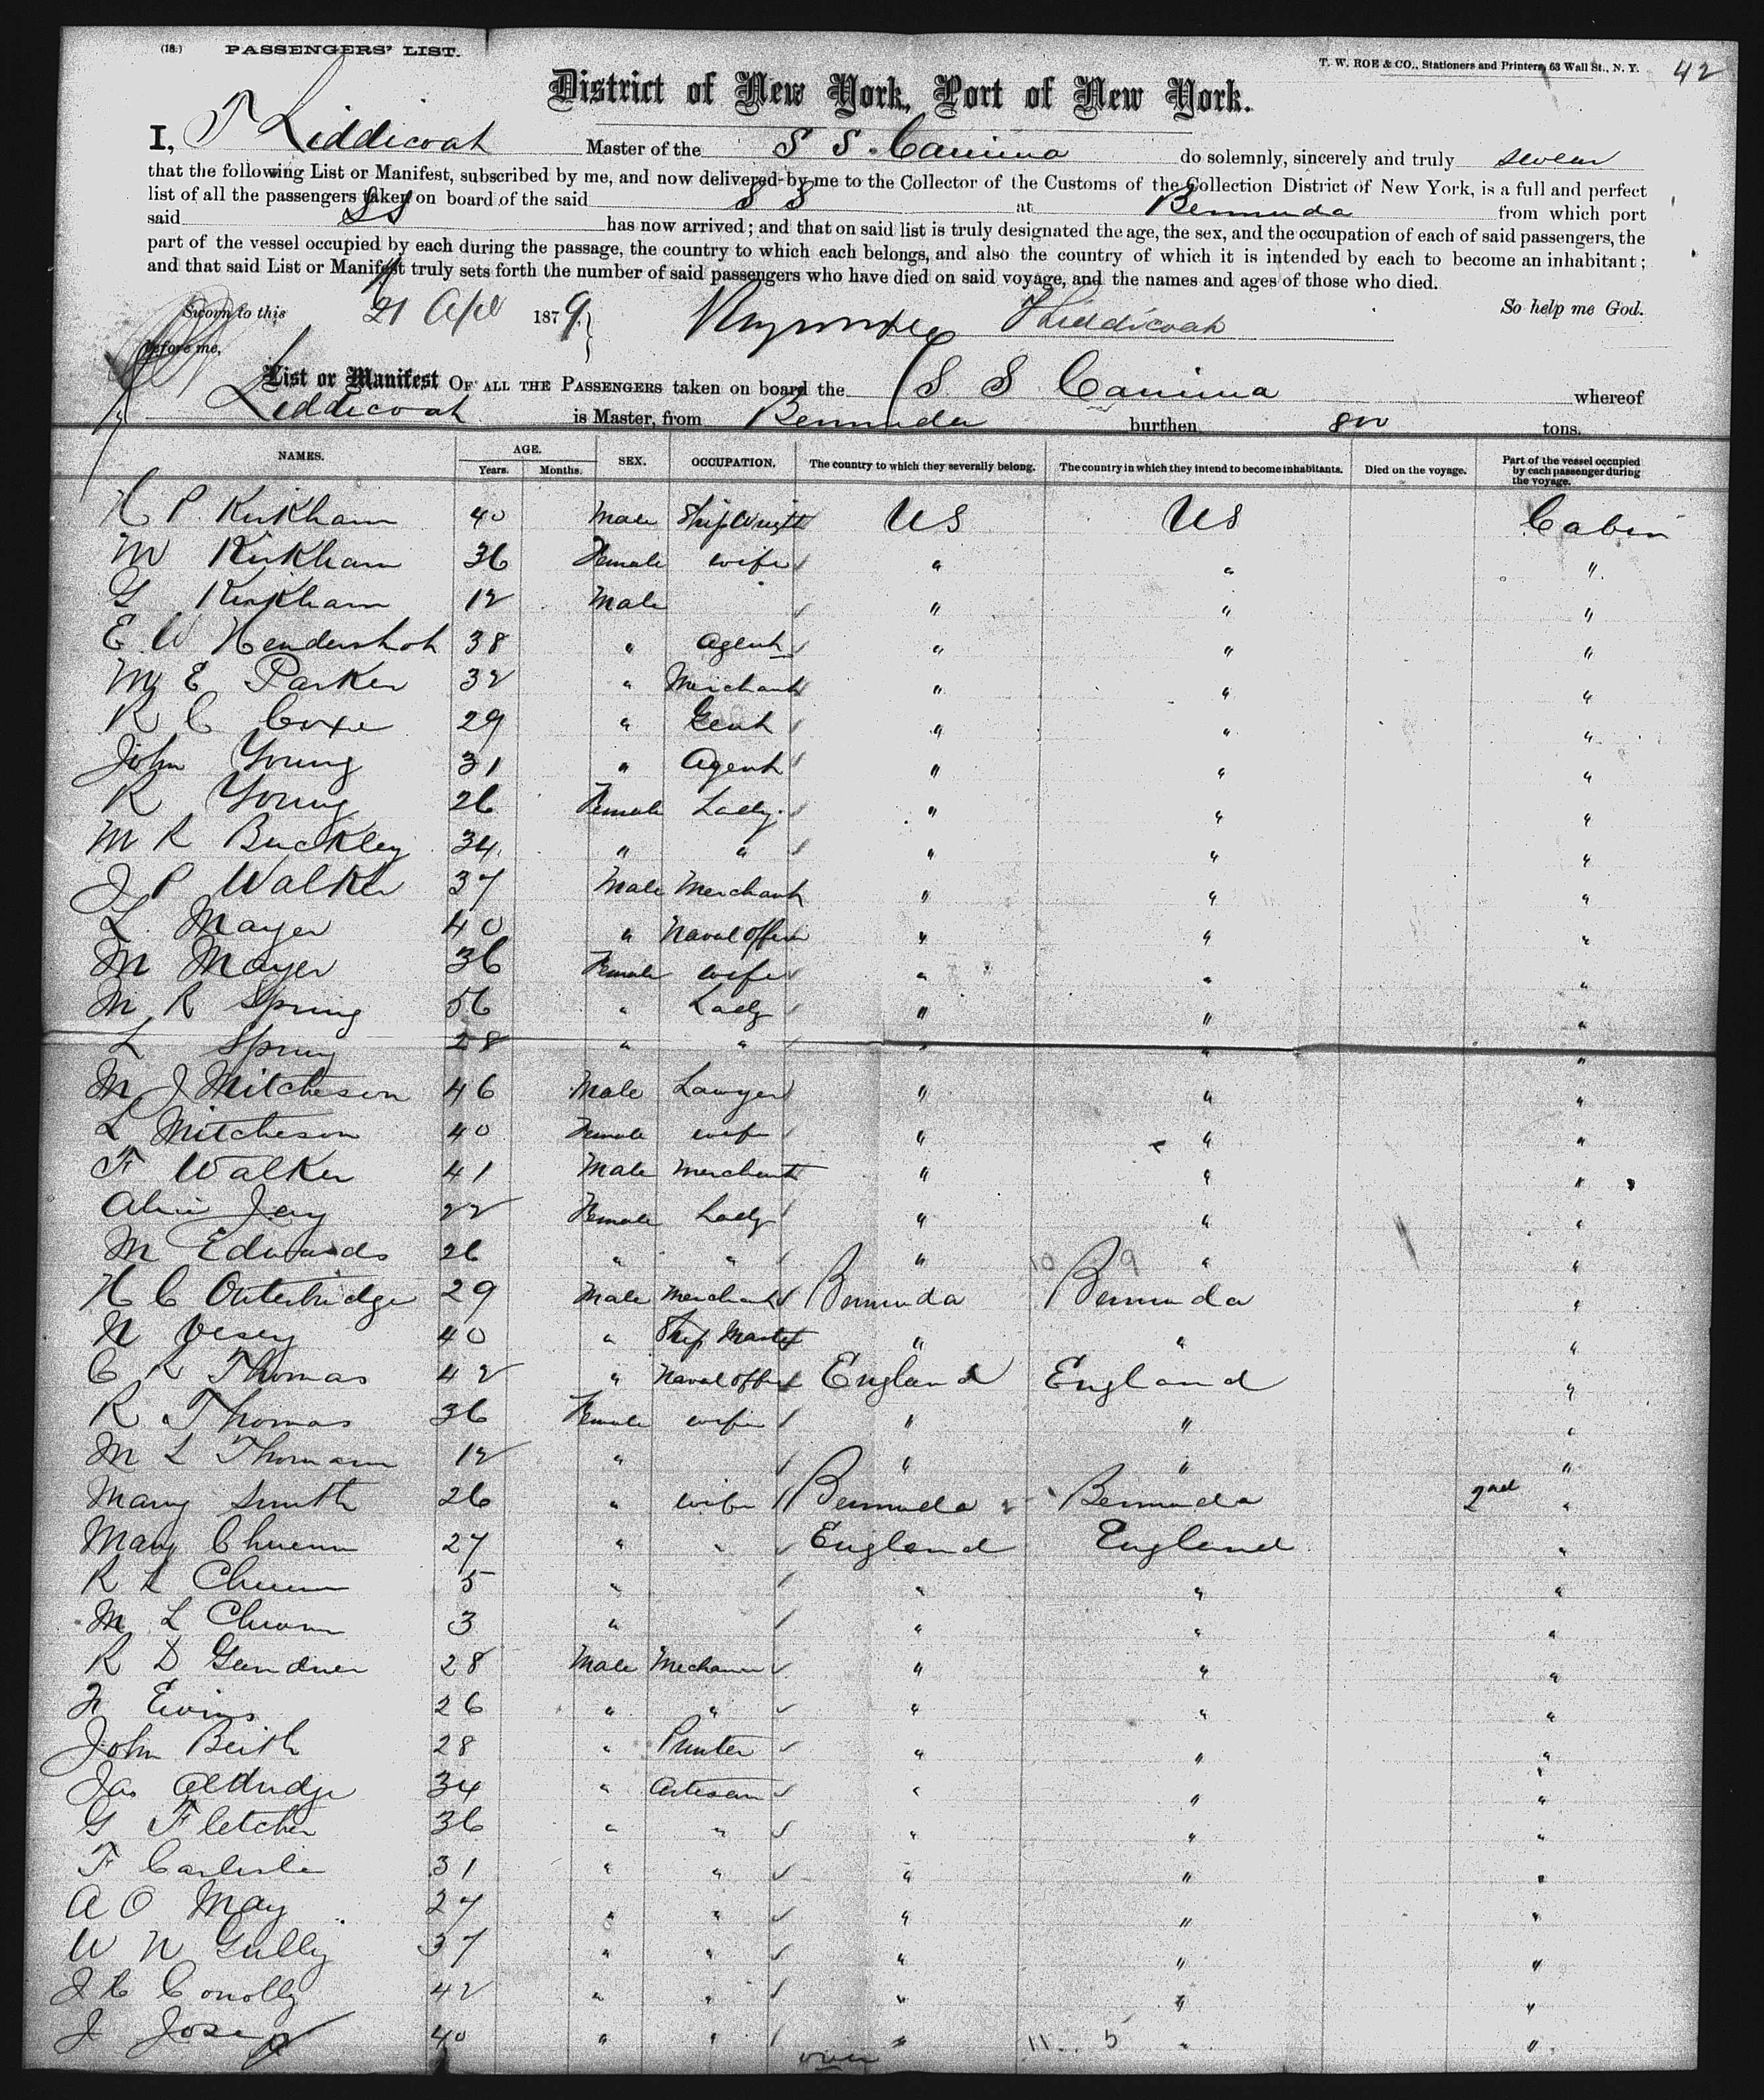 (18.) PASSENGERS' LIST.
T. W. ROE & CO., Stationers and Printers, 63 Wall St., N. Y. 42
District of New York, Port of New York.
I, T Liddicoat Master of the S S. Canima do solemnly, sincerely and truly swear
that the following List or Manifest, subscribed by me, and now delivered by me to the Collector of the Customs of the Collection District of New York, is a full and perfect
list of all the passengers taken on board of the said S S at Bermuda from which port
said SS has now arrived; and that on said list is truly designated the age, the sex, and the occupation of each of said passengers, the
part of the vessel occupied by each during the passage, the country to which each belongs, and also the country of which it is intended by each to become an inhabitant;
and that said List or Manifest truly sets forth the number of said passengers who have died on said voyage, and the names and ages of those who died.
Sworn to this 21 Apl 1879 Liddicoat So help me God.
before me,
List or Manifest OF ALL THE PASSENGERS taken on board the S S Canima whereof
Liddicoat is Master, from Bermuda burthen 800 tons.
NAMES. AGE. Years. Months. SEX. OCCUPATION. The country to which they severally belong. The country in which they intend to become inhabitants. Died on the voyage. Part of the vessel occupied by each passenger during the voyage.
H P. Kirkham 40 Male Ship Wright US US Cabin
M Kirkham 36 Female wife " " "
G Kirkham 12 Male " " "
E. W Hendershot 38 " Agent " " "
M E Parker 32 " Merchant " " "
R C Coxe 29 " Gent " " "
John Young 31 " Agent " " "
R Young 26 Female Lady " " "
M R Buckley 34 " " " " "
J P Walker 37 Male Merchant " " "
L. Mayer 40 " Naval officer " " "
M Mayer 36 Female wife " " "
M R Spring 56 " Lady " " "
L Spring 28 " " " " "
M J Mitcheson 46 Male Lawyer " " "
L Mitcheson 40 Female wife " " "
F Walker 41 Male Merchant " " "
Alice Jay 22 Female Lady " " "
M Edwards 26 " " " 10 9 " "
H C Outerbridge 29 Male Merchant Bermuda Bermuda "
N Vesey 40 " Ship Master " " "
C R Thomas 42 " Naval officer England England "
R Thomas 36 Female wife " " "
M L Thomas 12 " " " "
Mary Smith 26 " wife Bermuda Bermuda 2nd "
Mary 27 " " England England "
R L 5 " " " "
M L 3 " " " "
R D Gardner 28 Male Mechanic " " "
26 " " " " "
John Beith 28 " Printer " " "
Jas Aldridge 34 " Artesan " " "
G Fletcher 36 " " " " "
F Carlisle 31 " " " " "
A O May 27 " " " " "
W N Gully 37 " " " " "
J C Conolly 42 " " " " "
J 40 " " " 11 5 " "
over